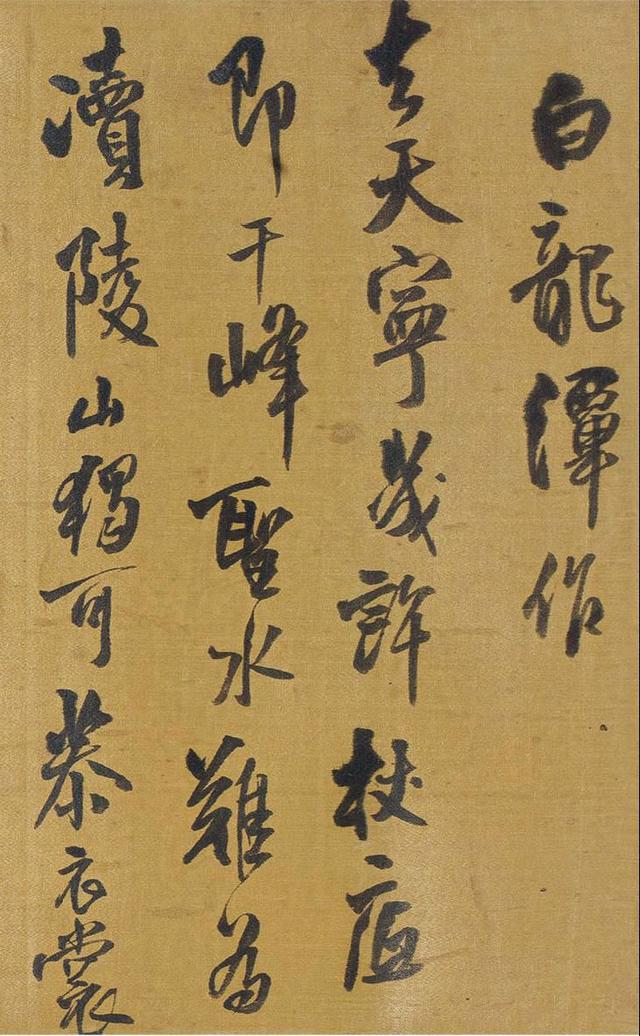 白龍潭作
去天寧幾許杖底
即千峰聖水難為
瀆陵山獨可恭衣裳